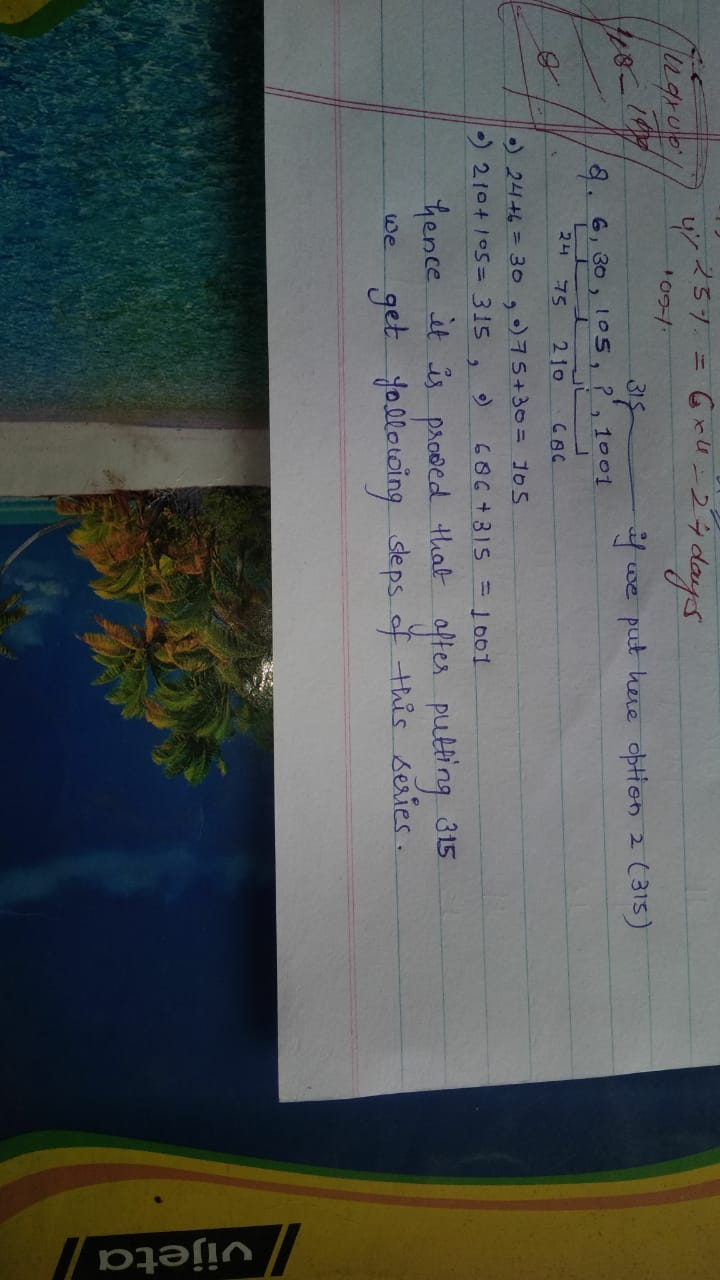 11 25% = 6x4 - 24 days
100%
315 if we put here option 2 (315)
8. 6, 30, 105, ?, 1001
24 75 210 686
•) 24+6 = 30 , •) 75+30 = 105
•) 210+105 = 315 , •) 686+315 = 1001
hence it is prooved that after putting 315
we get following steps of this series.
vijeta